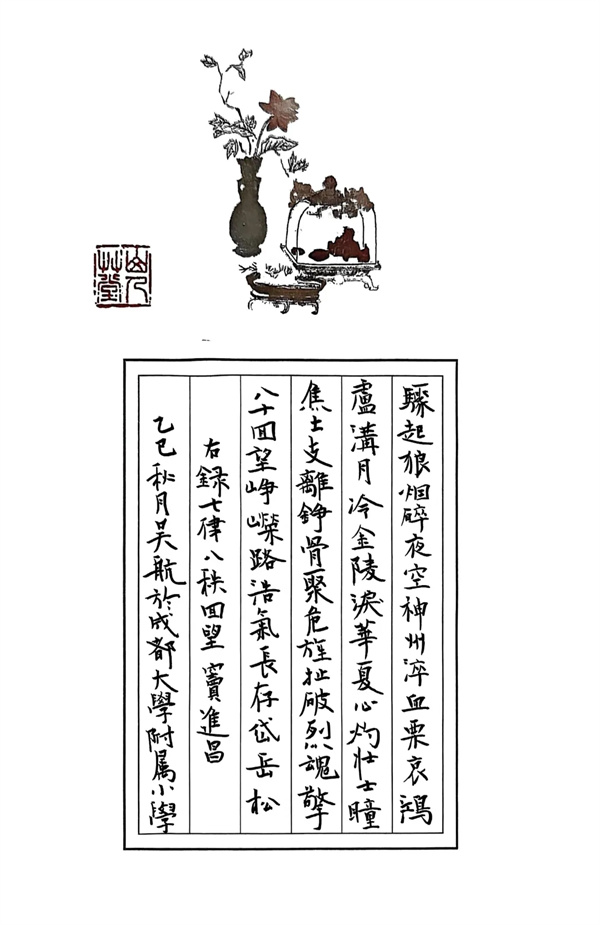 骤起狼烟碎夜空神州淬血栗哀鴻
盧溝月冷金陵淚華夏心灼壮士瞳
焦土支離錚骨聚危旌扯破烈魂擎
八十回望峥嶸路浩氣長存岱岳松
右録七律八秩回望 竇進昌
乙巳秋月吴航於成都大學附属小學